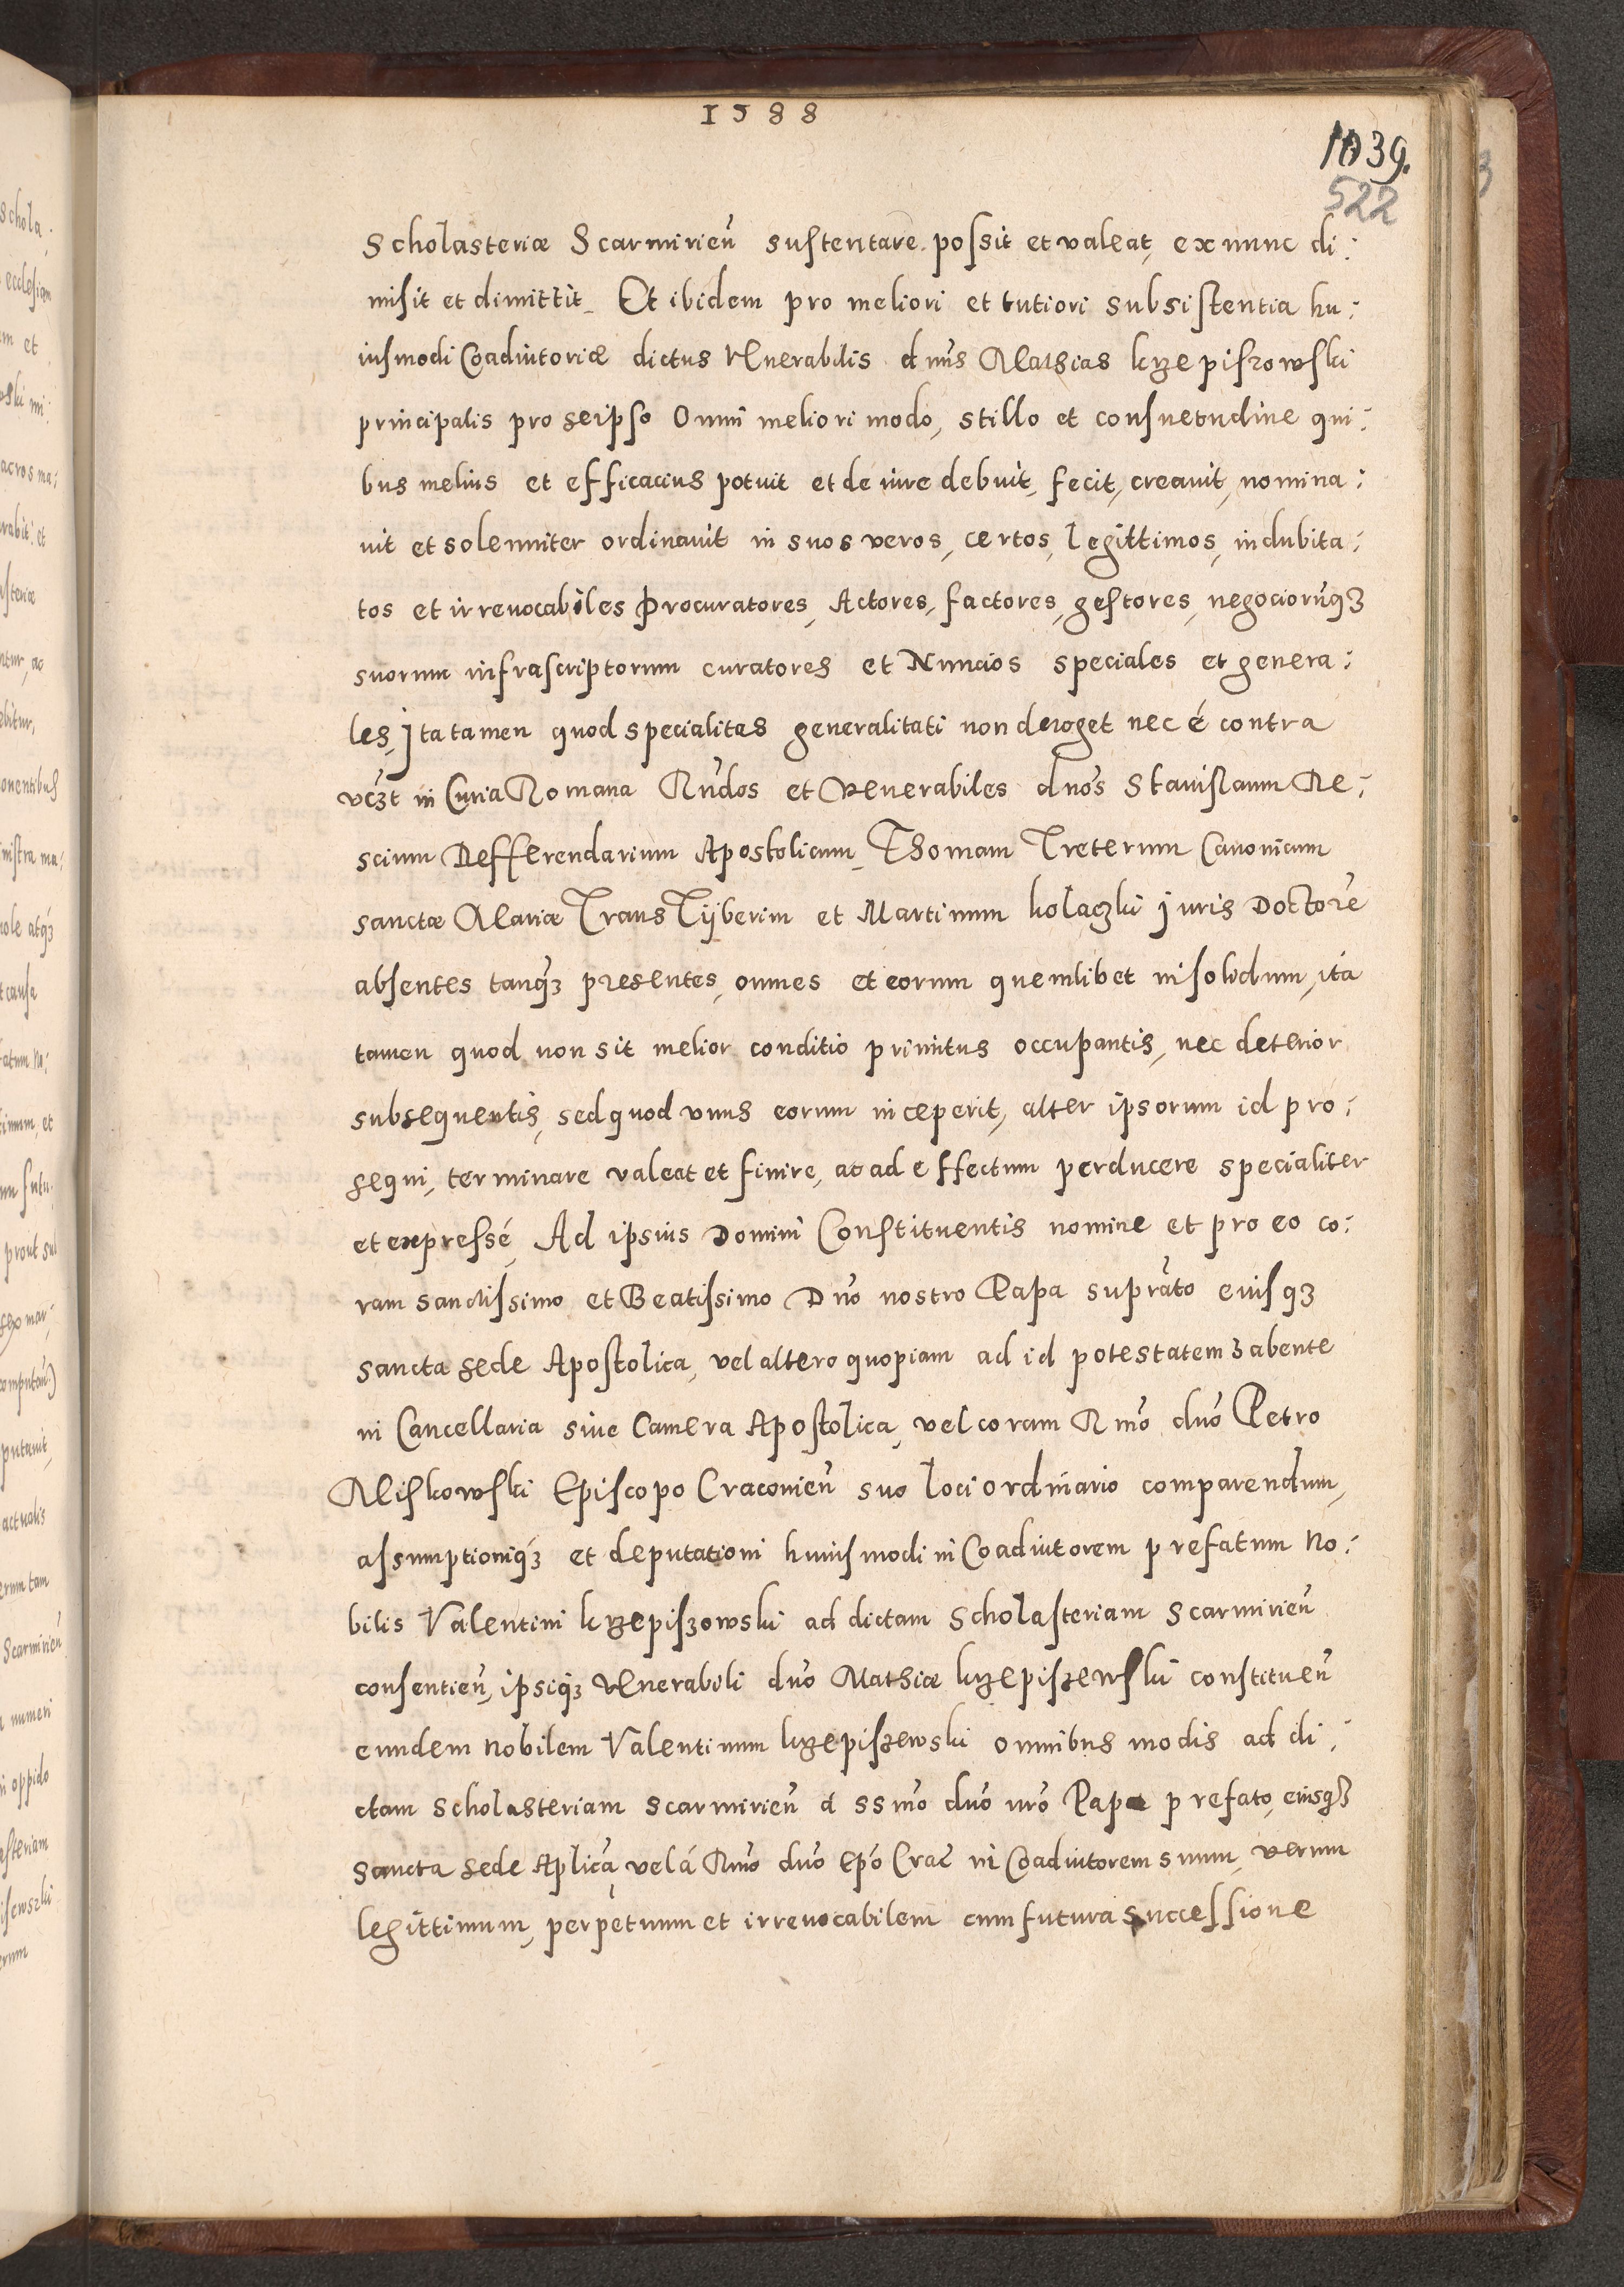 1588
1039.
522
Scholasteriæ Scarmirieñ sustentare possit et valeat, ex nunc di:
misit et dimittit. Et ibidem pro meliori et tutiori subsistentia hu:
iusmodi Coadiutoriæ dictus Venerabilis dnūs Mathias krzepiszowski
principalis pro seipso Omni meliori modo, stillo et consuetudine qui:
bus melius et efficacius potuit et de iure debuit, fecit, creavit, nomina:
vit et solenniter ordinavit in suos veros, certos, legittimos, indubita:
tos et irrevocabiles Procuratores, Actores, factores, gestores, negociorūqȝ
suorum infrascriptorum curatores et Nuncios speciales et genera:
les, Jta tamen quod specialitas generalitati non deroget nec é contra
vcȝt in Curia Romana Rñdos et Venerabiles dnōs Stanislaum Re:
scium Refferendarium Apostolicum, Thomam Treterum Canonicum
sanctæ Mariæ TransTÿberim et Martinum kolaczki Juris Doctorē
absentes tanqȝ presentes, omnes et eorum quemlibet in solidum, ita
tamen quod non sit melior conditio primitus occupantis, nec deterior
subsequentis, sed quod unus eorum inceperit, alter ipsorum id pro:
sequi, terminare valeat et finire, ac ad effectum perducere specialiter
et expressé, Ad ipsius Domini Constituentis nomine et pro eo co:
ram sanctissimo et Beatissimo Dnō nostro Papa suprāto eiusqȝ
sancta sede Apostolica, vel altero quopiam ad id potestatem habente
in Cancellaria sive Camera Apostolica, vel coram Rmō dnō Petro
Miskowski Episcopo Cracovieñ suo loci ordinario comparendum,
assumptioniqȝ et deputationi huiusmodi in Coadiutorem prefatum No:
bilis Valentini krzepiszowski ad dictam Scholasteriam Scarmirieñ
consentieñ, ipsiqȝ Venerabili dnō Mathiæ krzepiszewski constitueñ
eundem nobilem Valentinum krzepiszewski omnibus modis ad di:
ctam scholasteriam scarmirieñ á ssmō dnō nrō Papa prefato, eiusqȝ
sancta sede Aplicā, vel á Rmō dnō epō Crac̄ in Coadiutorem suum, verum
legittimum, perpetuum et irrevocabilem cum futura successione